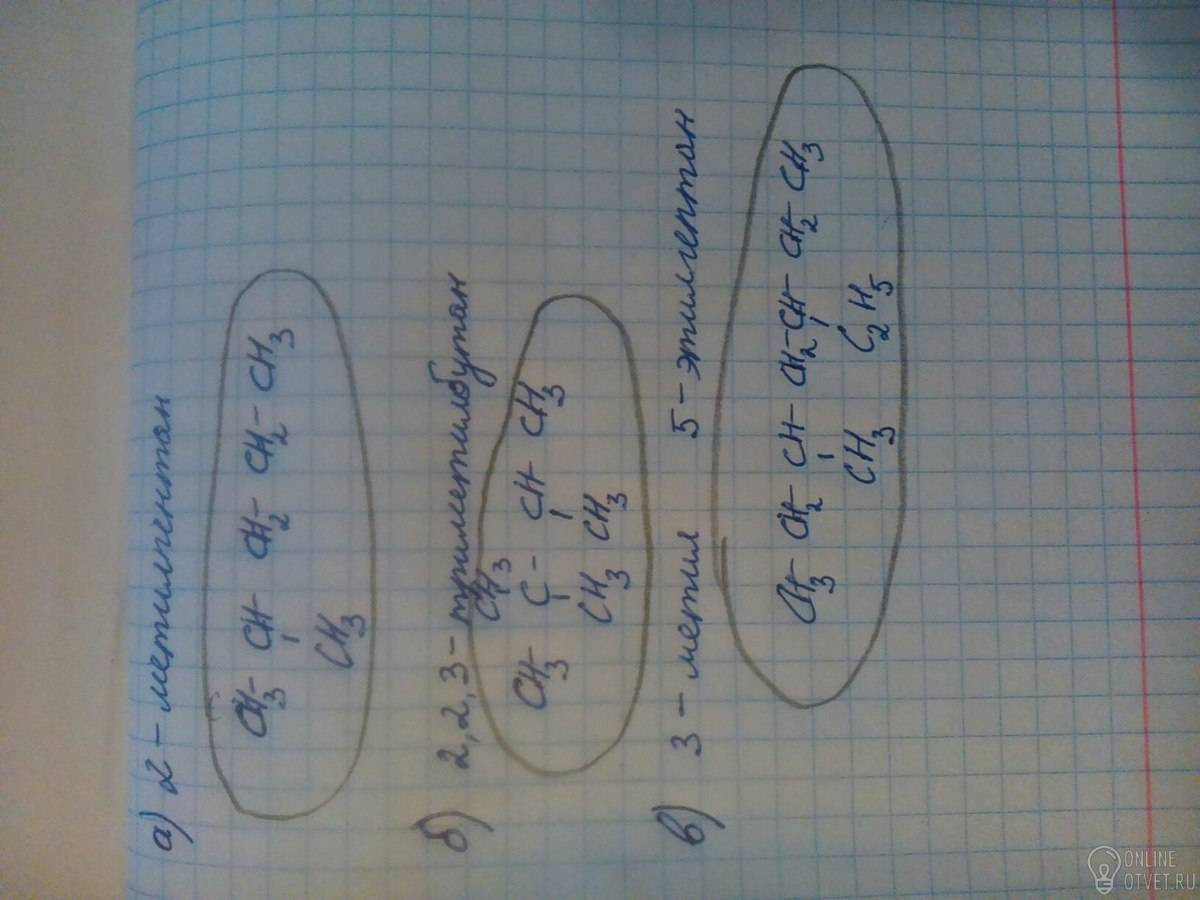 а) 2 – метилпентан
CH3 – CH – CH2 – CH2 – CH3
CH3
б) 2,2,3 – триметилбутан
CH3
CH3 – C – CH – CH3
CH3 CH3
в) 3 – метил 5 – этилгептан
CH3 – CH2 – CH – CH2 – CH – CH2 – CH3
CH3 C2H5
ONLINE
OTVET.RU